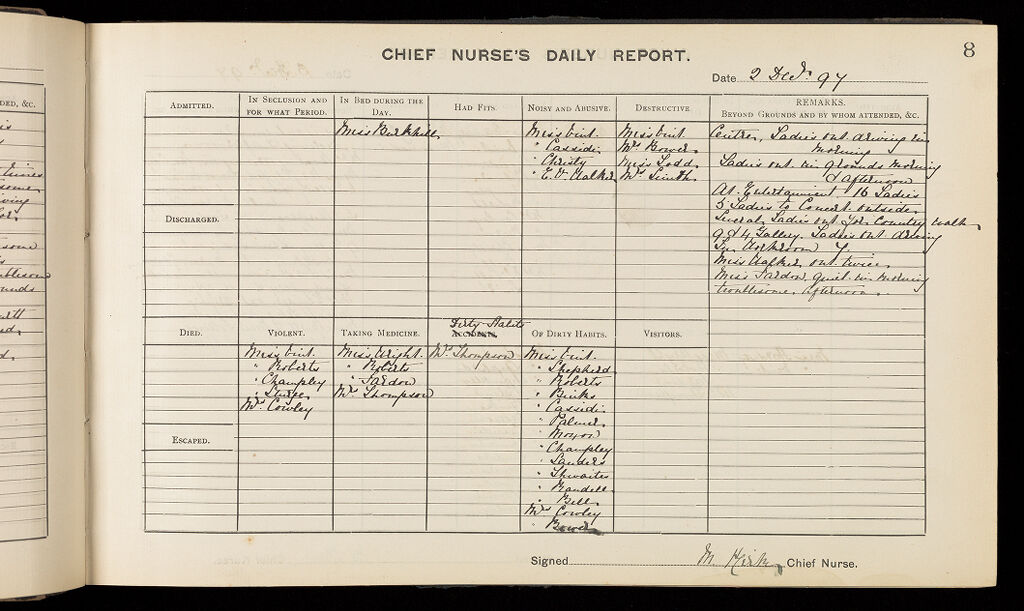 8
CHIEF NURSE'S DAILY REPORT.
Date 2 Decr. 97
ADMITTED.
IN SECLUSION AND FOR WHAT PERIOD.
IN BED DURING THE DAY.
HAD FITS.
NOISY AND ABUSIVE.
DESTRUCTIVE.
REMARKS.
BEYOND GROUNDS AND BY WHOM ATTENDED, &C.
Miss
Miss
" Cassidi
" Christy
" E. V. Walker
Miss
Mrs Bower
Miss Todd
Mrs Smith
Centre, Ladies out driving in
morning
Ladies out in grounds morning
& afternoon
At Entertainment 16 Ladies
5 Ladies to Concert outside.
Several Ladies out for Country walk
9 & 4 Gallery. Ladies out driving
In Workroom 7.
Miss Walker out twice.
Miss Tardon quiet in morning
troublesome afternoon.
DISCHARGED.
DIED.
VIOLENT.
TAKING MEDICINE.
Dirty Habits
ACCIDENTS.
OF DIRTY HABITS.
VISITORS.
Miss
" Roberts
" Champley
" Sturge
Mrs Cowley
Miss Wright
" Roberts
" Tardon
Mrs Thompson
Mrs Thompson
Miss
" Shepherd
" Roberts
" Binks
" Cassidi
" Palmer
" Moxon
" Champley
" Sanders
" Thwaites
" Randell
" Bell
Mrs Cowley
" Bower
ESCAPED.
Signed M. Chief Nurse.
DED, &C.